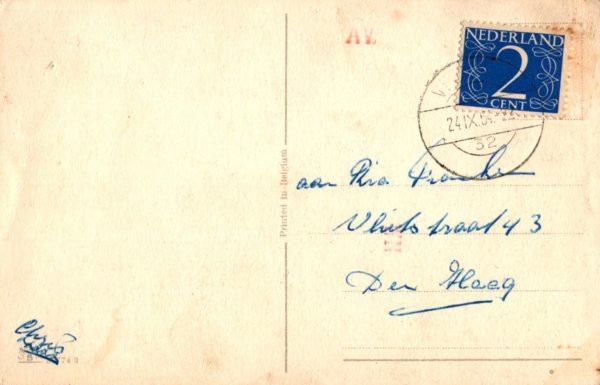 AV.
NEDERLAND
2
CENT
24 IX.5
32
Printed in Belgium
aan Ria Franke
Vlietstraat 43
Den Haag